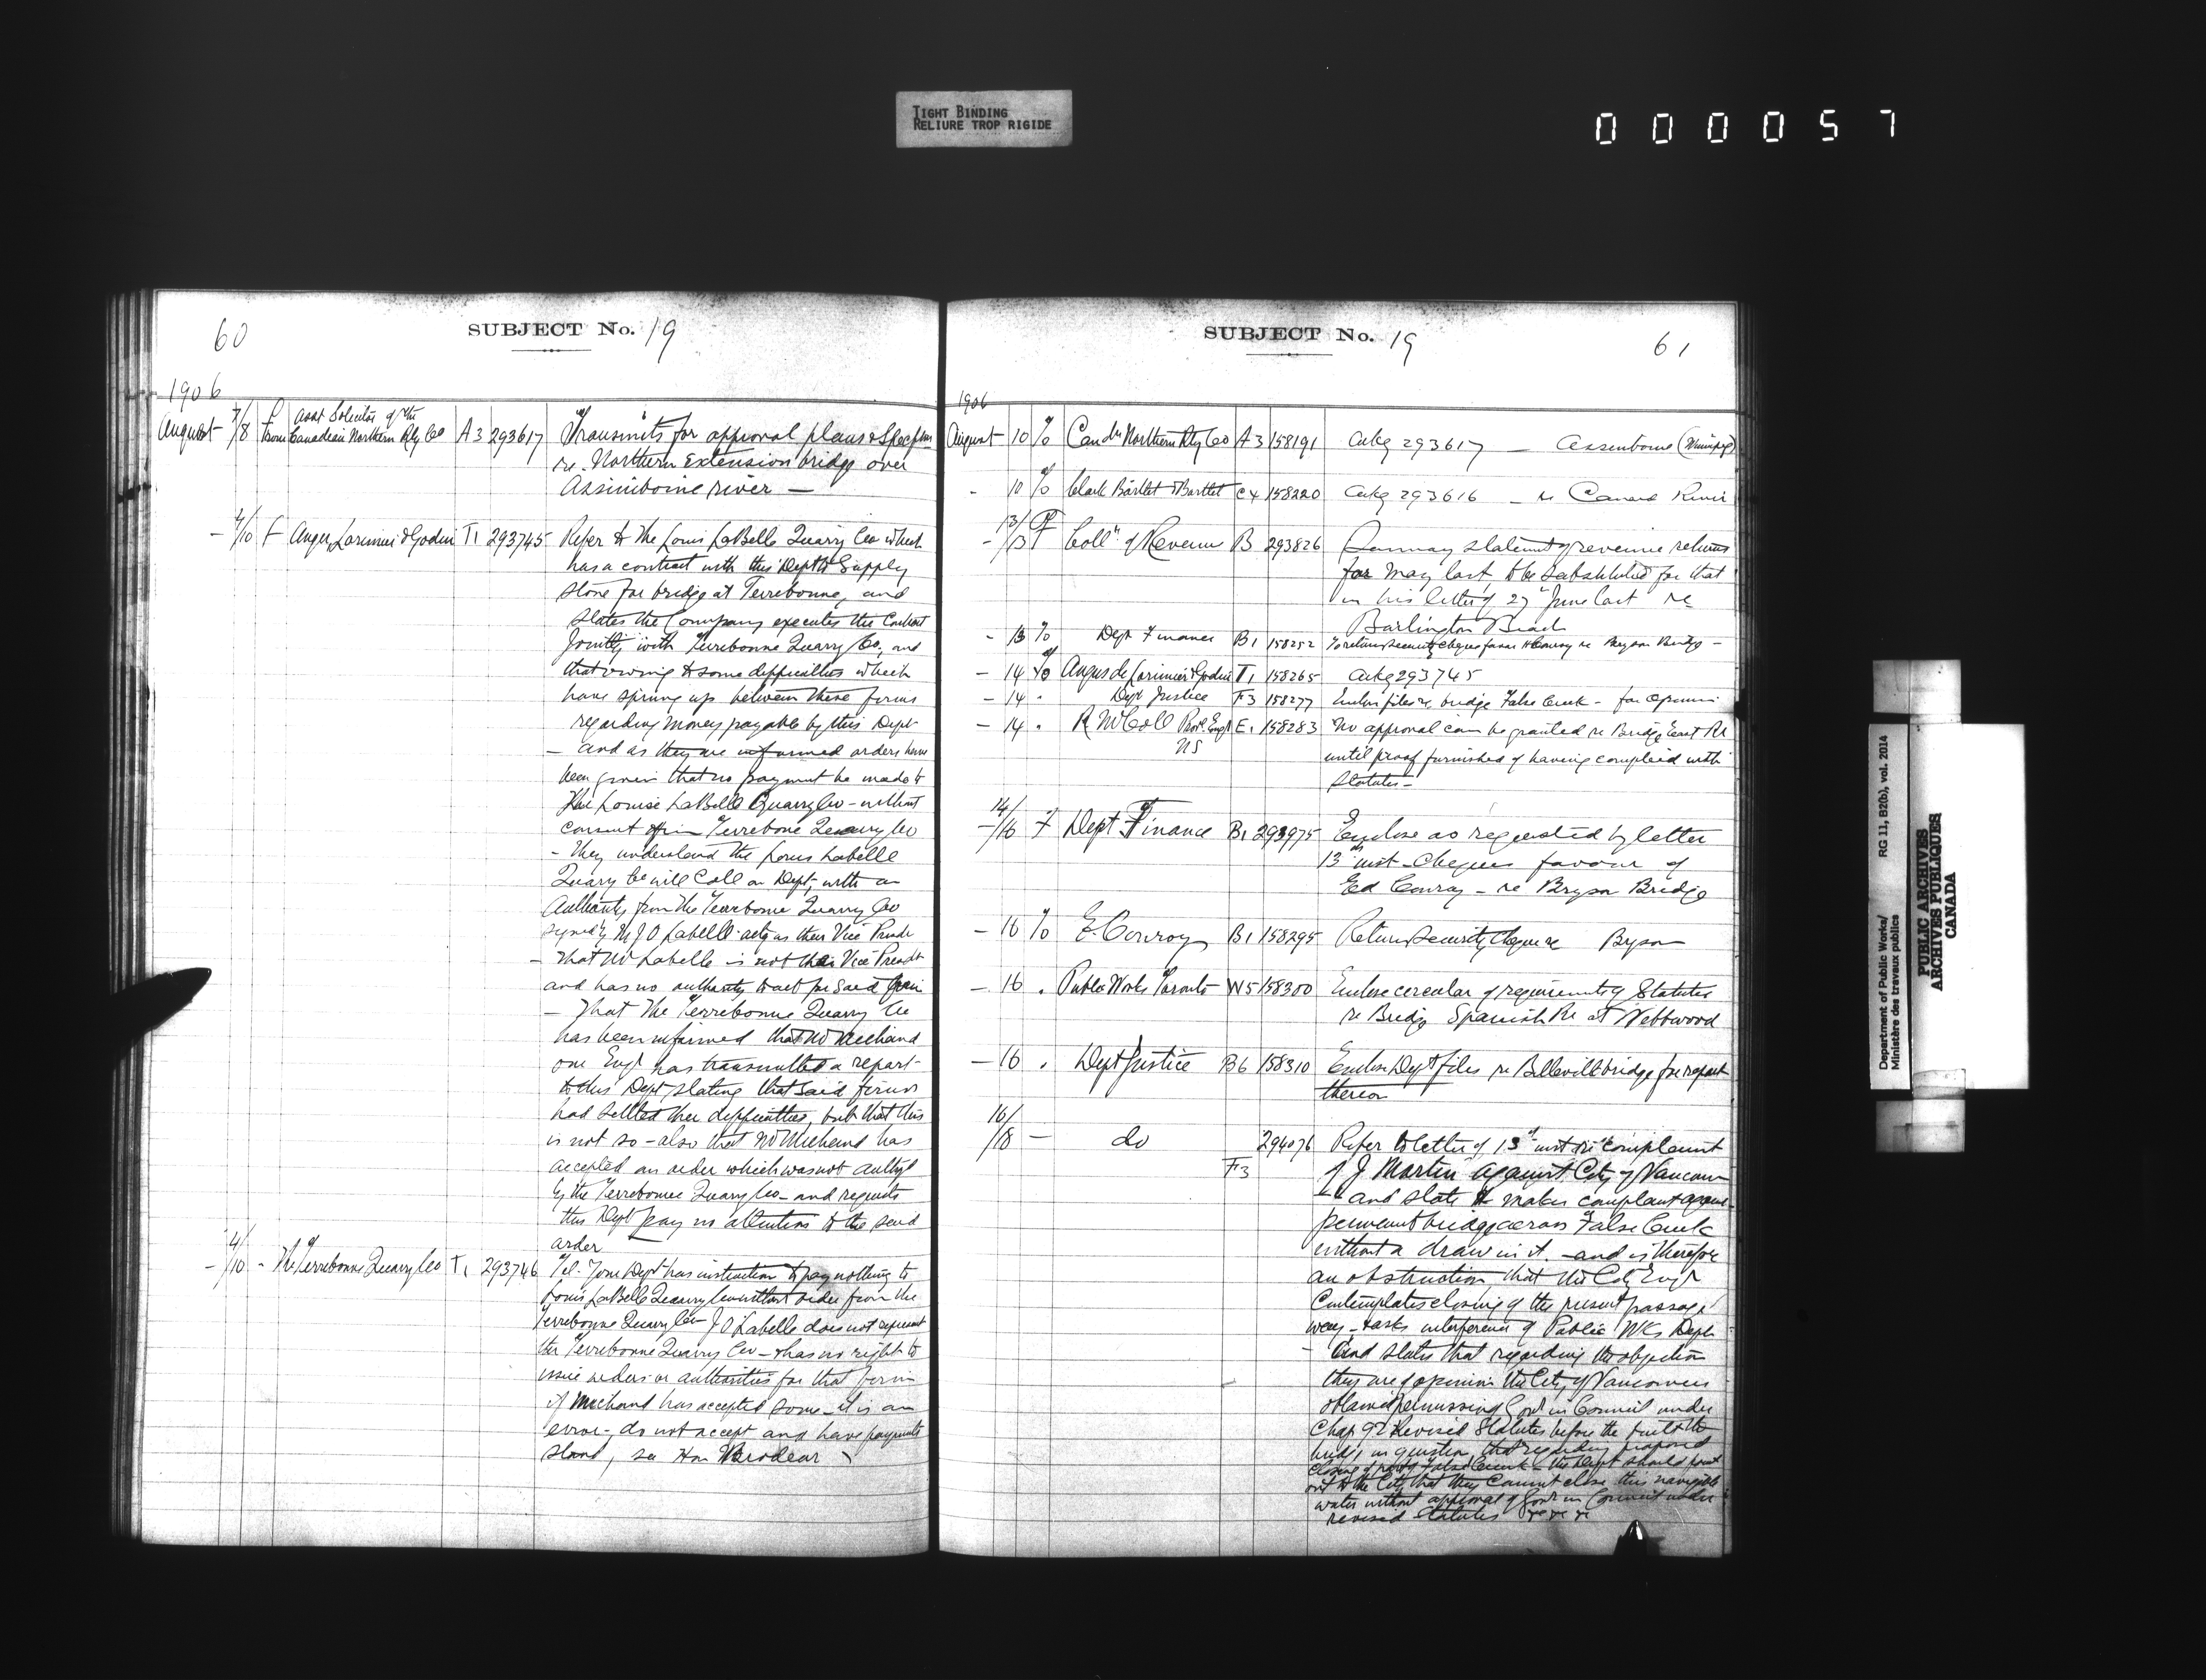 TIGHT BINDING
RELIURE TROP RIGIDE
000057
60
SUBJECT No. 19
1906
August 7/8 From Asst Solicitor of the Canadian Northern Rly Co A3 293617 Transmits for approval plans & Specfns
re Northern Extension bridge over
Assiniboine river —
— 9/10 F Anger, Lorimier & Godin T1 293745 Refer to the Louis LaBelle Quarry Co which
has a contract with this Dept to Supply
stone for bridge at Terrebonne, and
states the Company executes the Contract
Jointly with Terrebonne Quarry Co, and
that owing to some difficulties which
have sprung up between these firms
regarding money payable by this Dept
— and as they are informed orders have
been given that no payment be made to
The Louise LaBelle Quarry Co — without
consent from Terrebone Quarry Co
— They understand the Louis Labelle
Quary Co will Call on Dept, with an
Authority from the Terrebonne Quarry Co
signed by Mr J O Labelle actg as their Vice Presdt
— that Mr Labelle is not their Vice Presdt
and has no authority to act for said firm
— That The Terrebonne Quarry Co
has been informed that Mr Michaud
our Engr has transmitted a report
to this Dept stating that said firms
had settled their difficulties, but that this
is not so — also that Mr Michaud has
accepted an order which was not authzd
by the Terrebonne Quarry Co — and requests
this Dept pay no attention to the said
order
— 9/10 - The Terrebonne Quarry Co T1 293746 Tel. Your Dept has instruction to pay nothing to
Louis LaBelle Quarry Co without order from the
Terrebonne Quarry Co — J O Labelle does not represent
the Terrebonne Quarry Co — & has no right to
issue orders or authorities for that firm
if Michaud has accepted some — it is an
error — do not accept and have payments
stand, see Hon
SUBJECT No. 19
61
1906
August 10 Candn Northern Rly Co A3 158191 Ackg 293617 — Assinboine (Winnipeg)
- 10 Clark Bartlet & Bartlet C4 158220 Ackg 293616 — re Canard River
- 13/13 F Colln of Revenue B 293826 statement of revenue returns
for May last, to be substituted for that
in his letter of 27th June last re
Burlington Beach
- 13 Dept Finance B1 158252 To return security cheque favor E Conroy re Bryson Bridge —
- 14 Angus de Lorimier & Godin T1 158265 Ackg 293745
- 14 . Dept Justice F3 158277 Enclos files re bridge False Creek — for Opinion
- 14 . R McColl Provl Engr NS E1 158283 No approval can be granted re Bridge East Rr
until proof furnished of having complied with
Statutes —
14/16 F Dept of Finance B1 293975 Enclose as requested by letter
13th inst — Cheques favour of
Ed Conroy — re Bryson Bridge
- 16 E. Conroy B1 158295 Return Security Cheque re Bryson
- 16 . Public Works Toronto W5 158300 Enclose circular of requirements of Statutes
re Bridge Spanish Rr at Webbwood
- 16 . Dept Justice B6 158310 Enclose Dept files re Belleville bridge for report
thereon
16/18 — do F3 294076 Refer to letter of 13th inst re complaint
of J Martin against City of Vancouver
— and state he makes complaint against
permanent bridge across False Creek
without a draw in it — and is therefore
an obstruction, that the City Engr
Contemplates closing of the present passage
way — & asks interference of Public Wks Dept
— And states that regarding the objection
they are of opinion the City of Vancouver
obtained permission Govr in Council under
Chap 92 Revised Statutes before they built the
bridge in question, that regarding proposed
closing of part of False Creek — the Dept should point
out to the City that they Cannot close this navigable
water without approval of Govr in Council under
revised Statutes
Department of Public Works/
Ministère des travaux publics
RG 11, B2(b), vol. 2014
PUBLIC ARCHIVES
ARCHIVES PUBLIQUES
CANADA